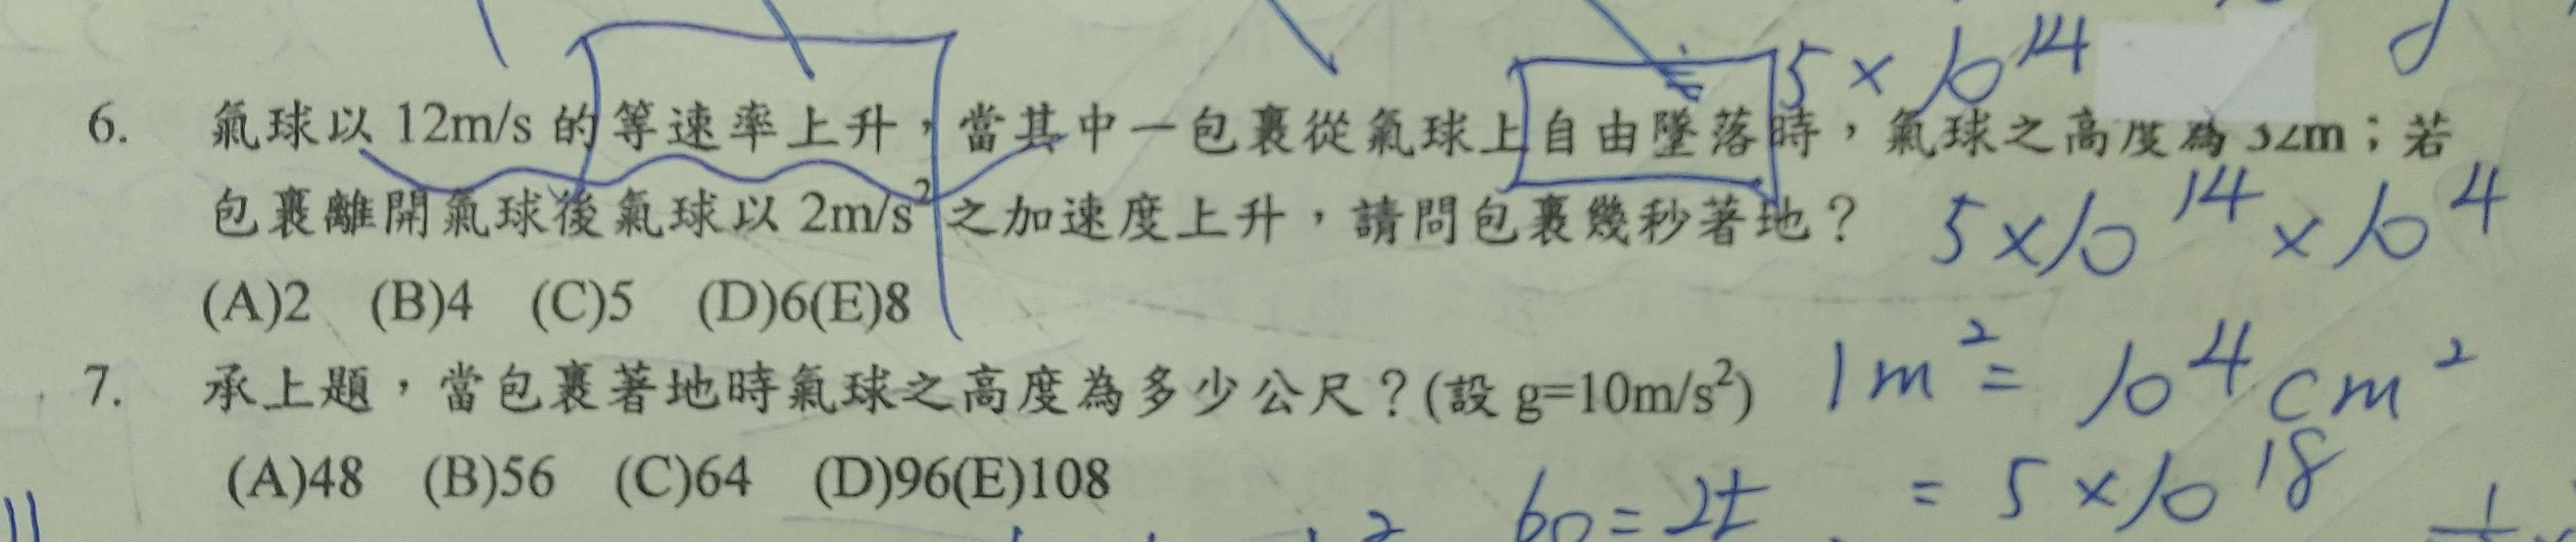 5 × 10¹⁴
6. 氣球以 12m/s 的等速率上升，當其中一包裹從氣球上自由墜落時，氣球之高度為 32m；若
包裹離開氣球後氣球以 2m/s² 之加速度上升，請問包裹幾秒著地？
5×10¹⁴×10⁴
(A)2 (B)4 (C)5 (D)6(E)8
7. 承上題，當包裹著地時氣球之高度為多少公尺？(設 g=10m/s²)
1m²= 10⁴cm²
(A)48 (B)56 (C)64 (D)96(E)108
= 5×10¹⁸
60=2t